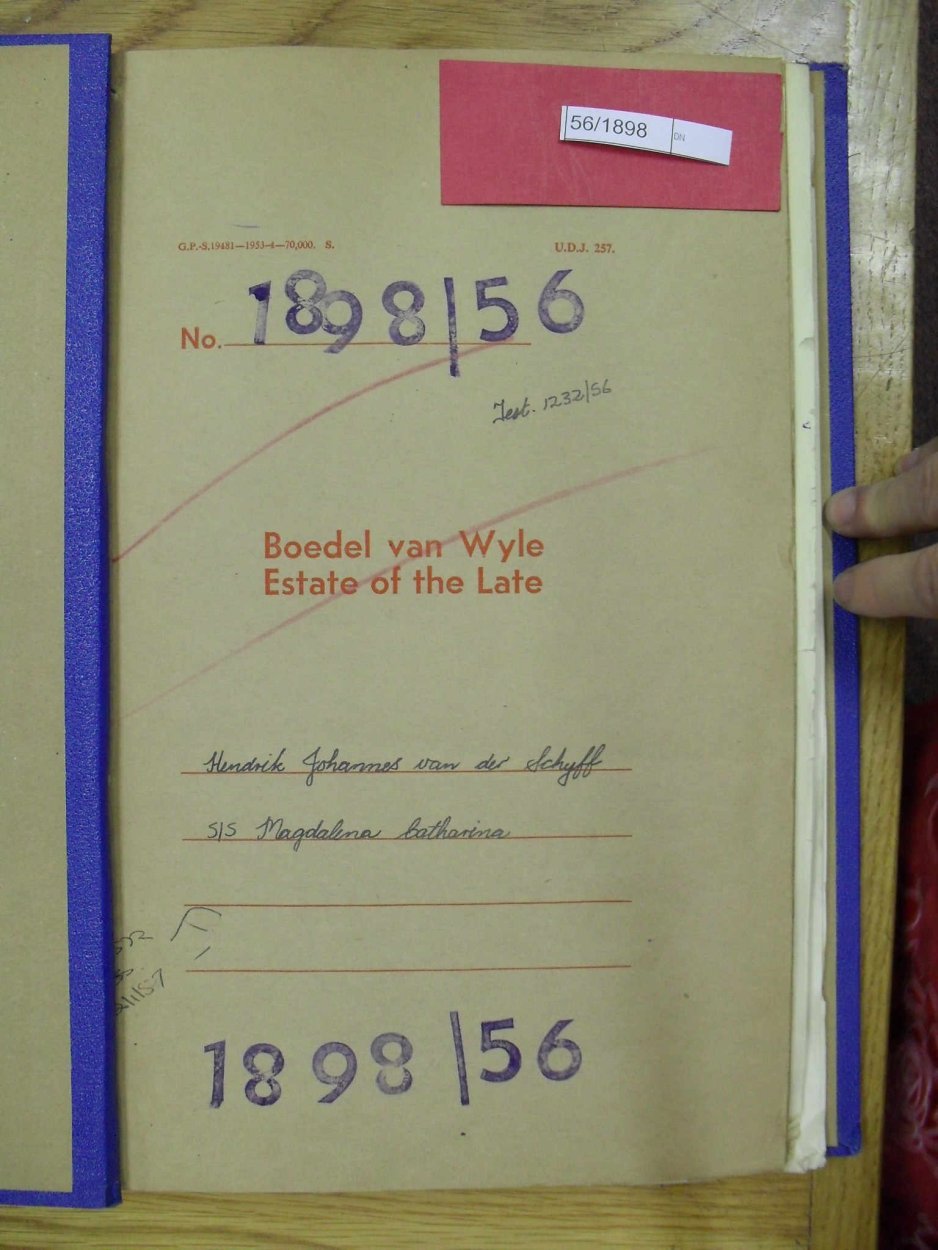 56/1898 DN
G.P.-S.19481—1953-4—70,000. S. U.D.J. 257.
No. 1898/56
Test. 1232/56
Boedel van Wyle
Estate of the Late
Hendrik Johannes van der Schyff
S/S Magdalena Catharina
1898/56